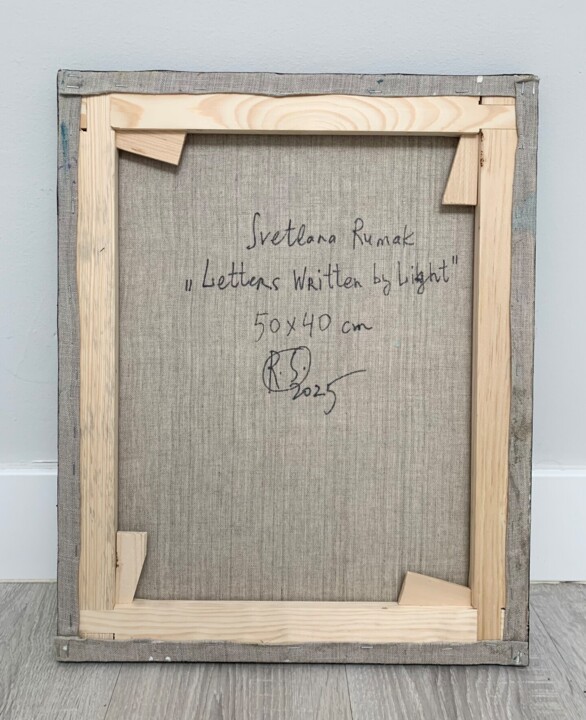 Svetlana Rumak
„Letters Written by Light"
50x40 cm
R.S.
2025